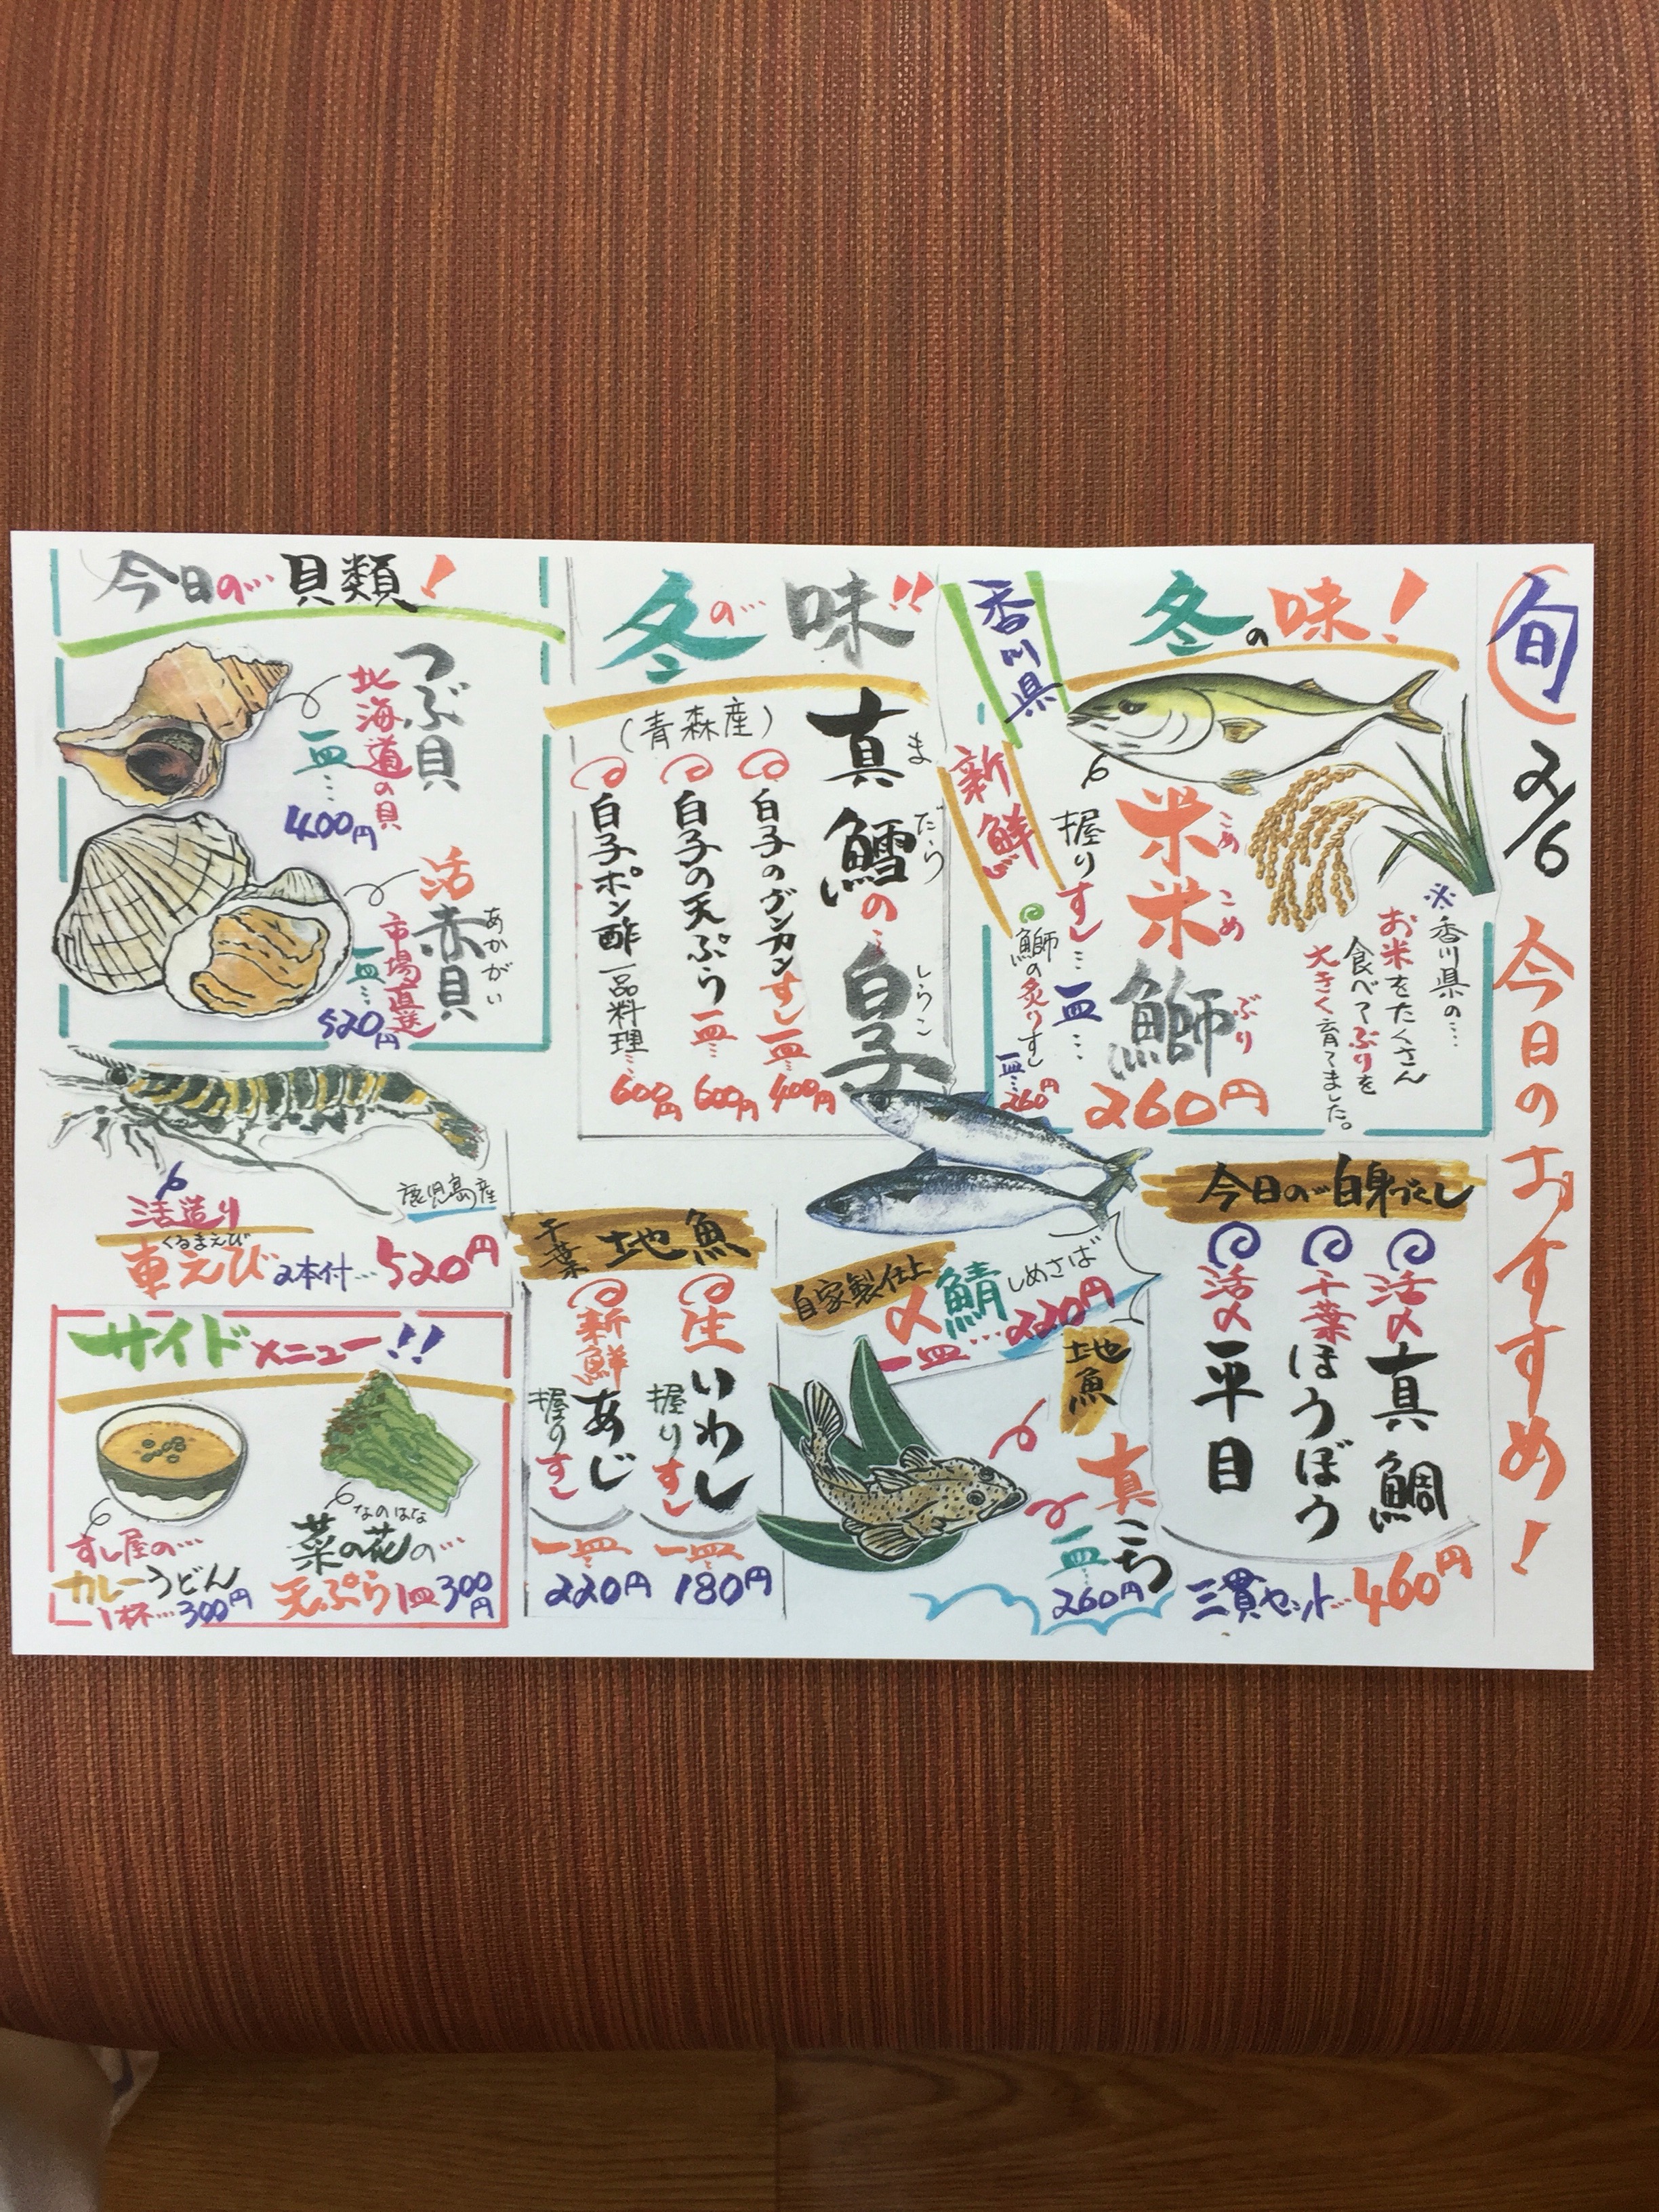 旬 2/6 今日のおすすめ！
冬の味！
香川県
新鮮
※香川県の…
お米をたくさん
食べてぶりを
大きく育てました。
米米鰤
こめこめぶり
260円
握りすし…一皿…
鰤の炙りすし
一皿…260円
冬の味!!
真鱈の白子
まだらしらこ
(青森産)
白子のガンカンすし一皿…400円
白子の天ぷら一皿…600円
白子ポン酢一品料理…600円
今日の…貝類！
つぶ貝
北海道の貝
一皿…
400円
活赤貝
あかがい
市場直送
一皿…
520円
今日の白身づくし
活〆真鯛
千葉ほうぼう
活〆平目
三貫セット…460円
自家製仕上
〆鯖
しめさば
一皿…220円
地魚
真こち
一皿
260円
千葉地魚
生いわし
握りすし
一皿
180円
新鮮あじ
握りすし
一皿
220円
鹿児島産
活造り
くるまえび
車えび2本付…520円
サイドメニュー!!
なのはな
菜の花の…
天ぷら1皿300円
すし屋の…
カレーうどん
1杯…300円